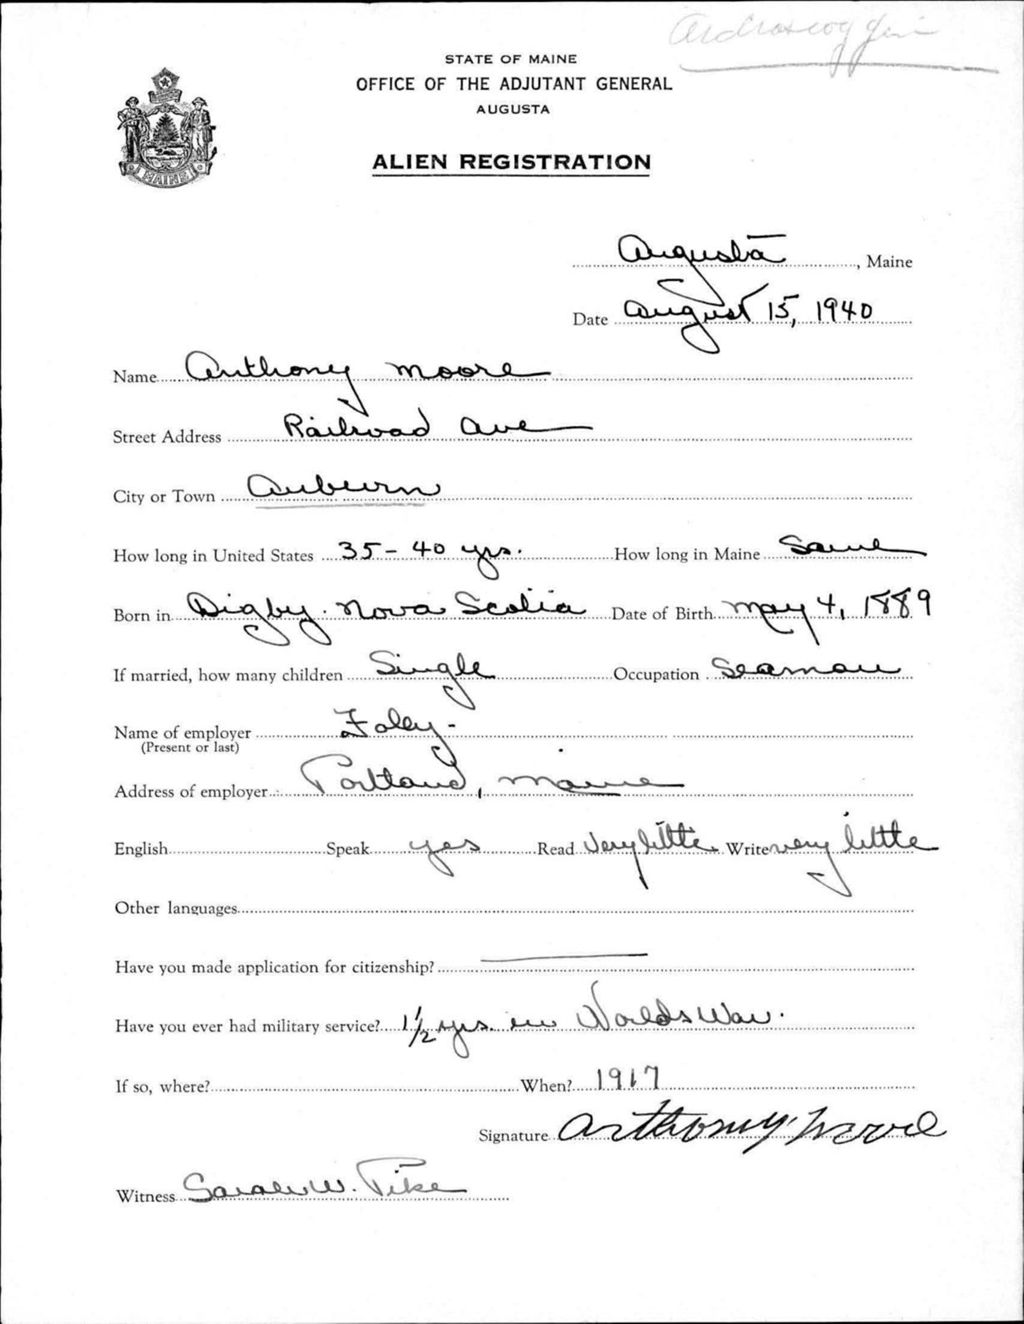 Androscoggin
STATE OF MAINE
OFFICE OF THE ADJUTANT GENERAL
AUGUSTA
ALIEN REGISTRATION
MAINE
Augusta, Maine
Date August 15, 1940
Name Anthony Moore
Street Address Railroad Ave
City or Town Auburn
How long in United States 35-40 yrs. How long in Maine Same
Born in Digby. Nova Scotia Date of Birth may 4, 1889
If married, how many children Single Occupation Seaman
Name of employer Foley-
(Present or last)
Address of employer Portland, Maine
English Speak yes Read Very little Write very little
Other languages
Have you made application for citizenship? —
Have you ever had military service? 1½ yrs. in Worlds War.
If so, where? When? 1917
Signature Anthony Moore
Witness Sarah W. Pike